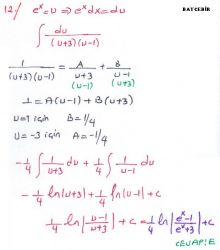 BAYCEBİR
12/ eˣ=u ⇒ eˣdx=du
∫ du/((u+3)(u-1))
1/((u+3)(u-1)) = A/(u+3) + B/(u-1)
(u-1) (u+3)
1=A(u-1)+B(u+3)
u=1 için B=1/4
u=-3 için A=-1/4
-1/4 ∫ 1/(u+3) du + 1/4 ∫ 1/(u-1) du
-1/4 ln|u+3| + 1/4 ln|u-1| + c
1/4 ln|(u-1)/(u+3)| + c = 1/4 ln|(eˣ-1)/(eˣ+3)| + c
CEVAP: E